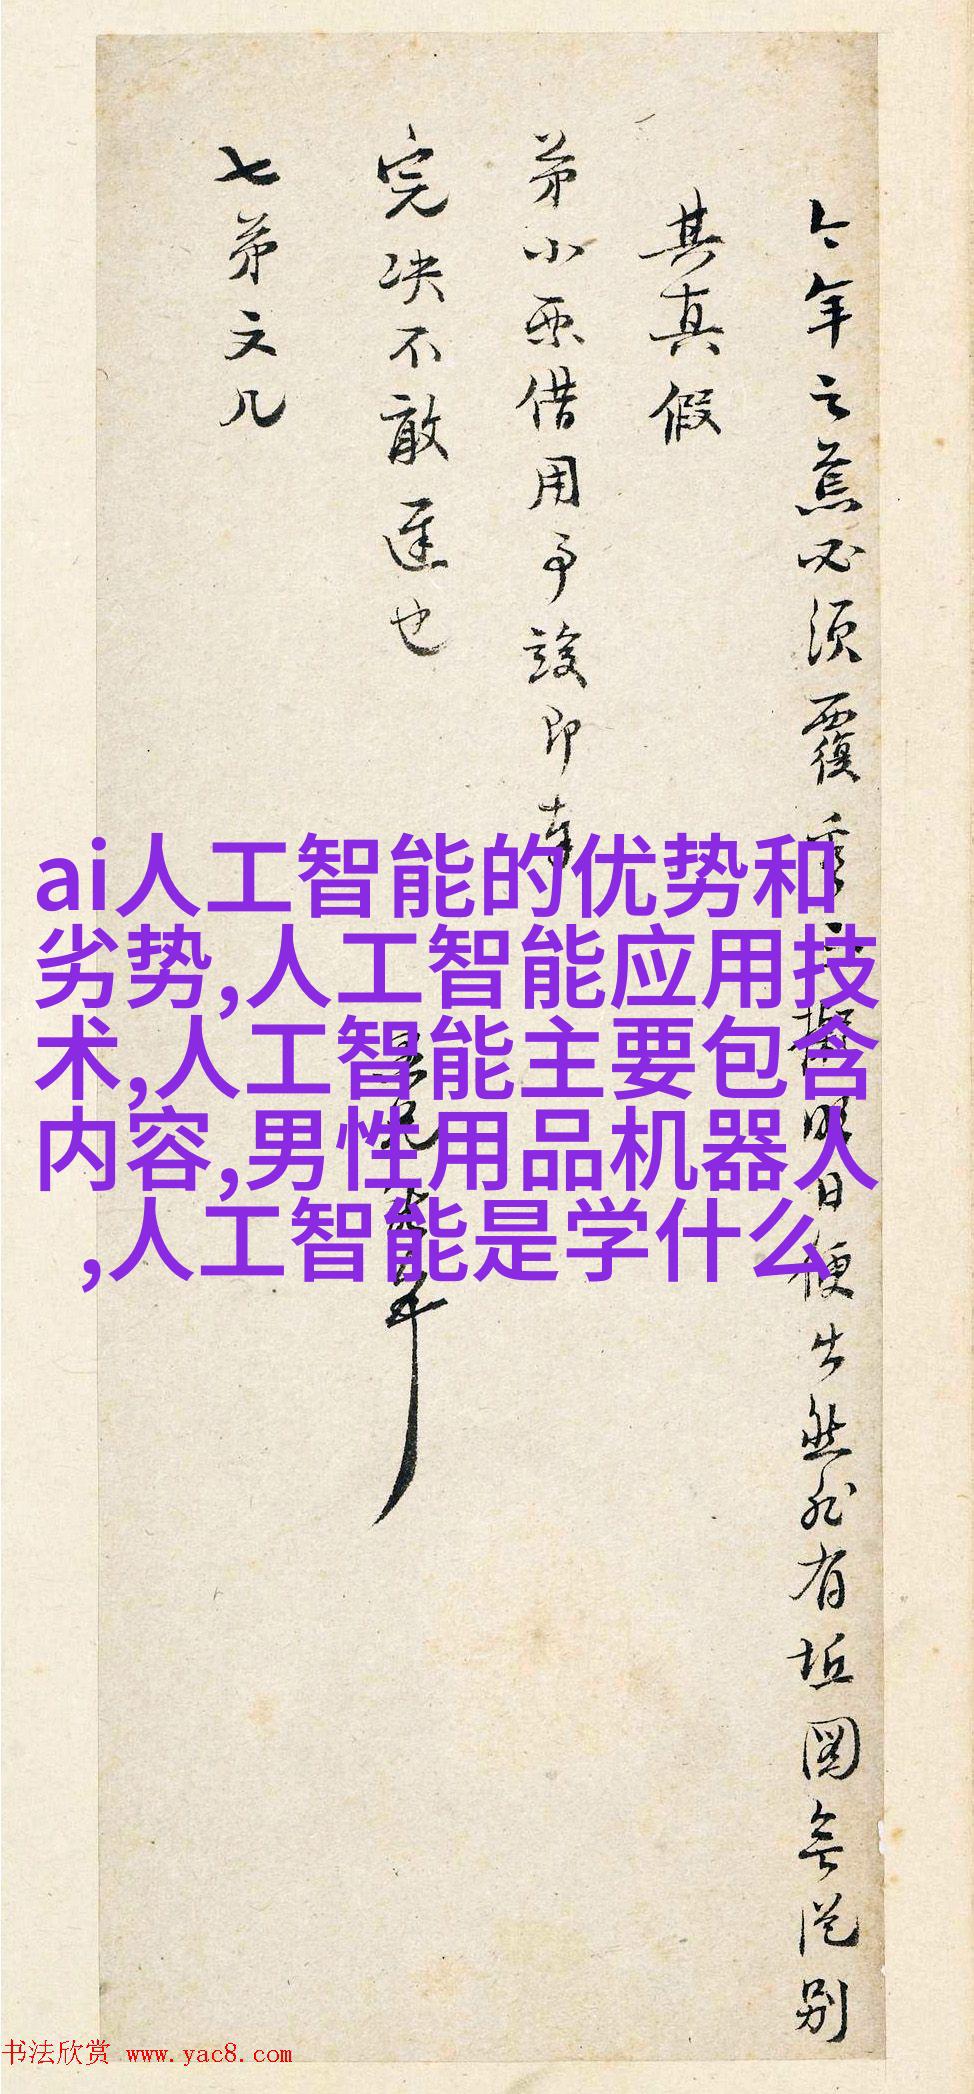 今年之蕉必须覆
明日便出然后有垢图无从别
其真假
弟小恙借用予竣即奉
完决不敢迟也
七弟文几
ai人工智能的优势和
劣势,人工智能应用技
术,人工智能主要包含
内容,男性用品机器人
,人工智能是学什么
书法欣赏 www.yac8.com